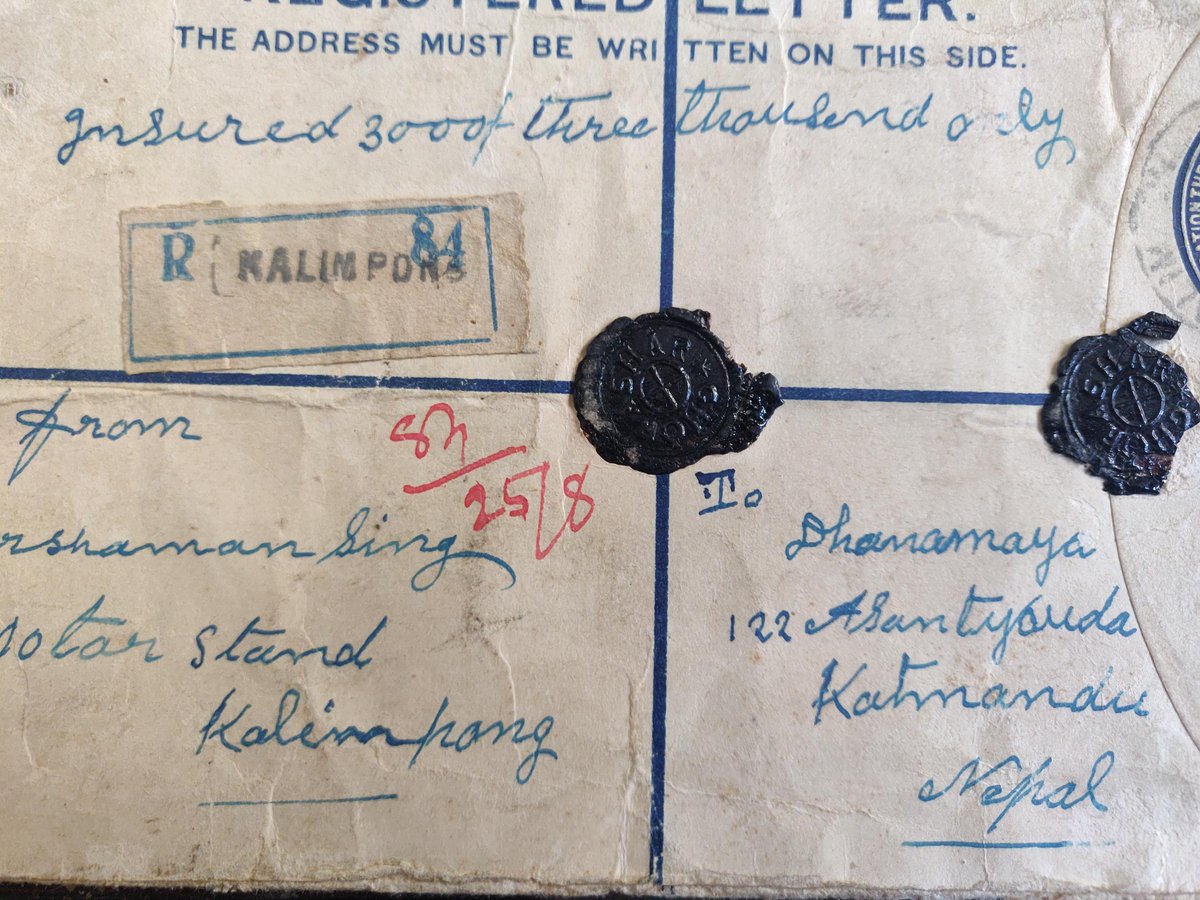 REGISTERED LETTER.
THE ADDRESS MUST BE WRITTEN ON THIS SIDE.
Insured 3000/- three thousand only
R KALIMPONG 84
from
rshaman Sing
otar Stand
Kalimpong
25/8
To
Dhanamaya
122 Asantyouda
Katmandu
Nepal